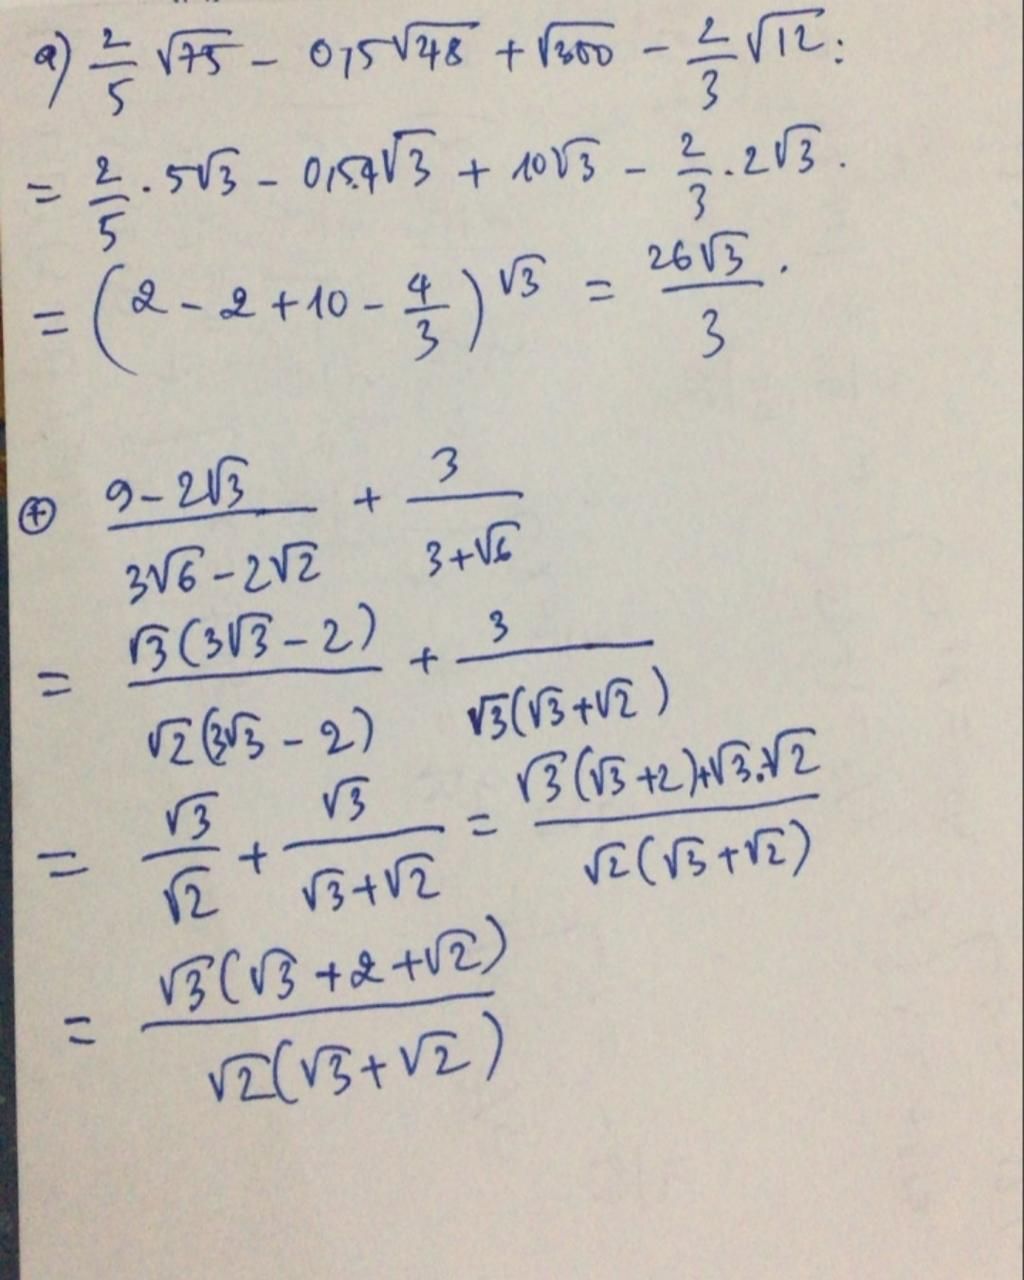 a) 2/5 √75 - 0,5√48 + √300 - 2/3 √12 :
= 2/5 . 5√3 - 0,5.4√3 + 10√3 - 2/3 . 2√3 .
= (2 - 2 + 10 - 4/3) √3 = 26√3/3 .
⊕ (9 - 2√3)/(3√6 - 2√2) + 3/(3 + √6)
= √3(3√3 - 2)/√2(3√3 - 2) + 3/√3(√3 + √2)
= √3/√2 + √3/(√3 + √2) = (√3(√3 + 2) + √3.√2)/√2(√3 + √2)
= √3(√3 + 2 + √2)/√2(√3 + √2)